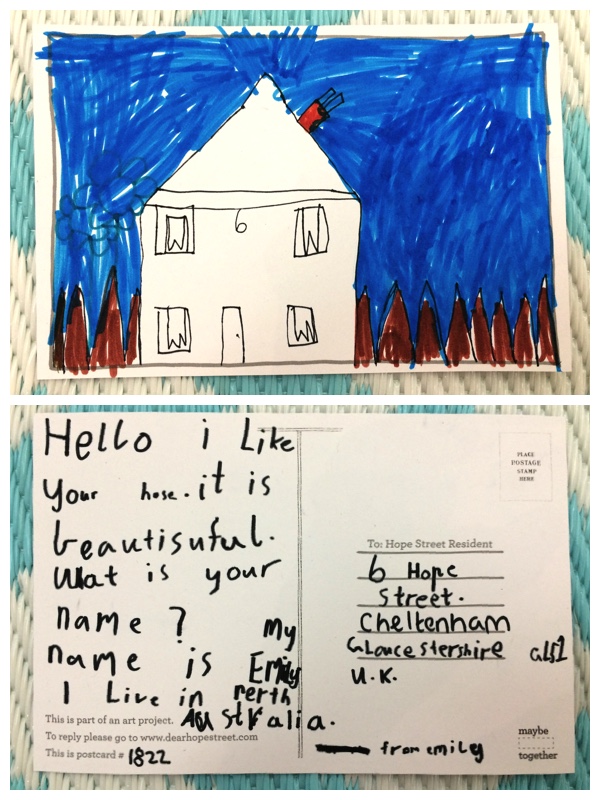 6
Hello i Like
Your hose. it is
beautisuful.
What is your
name? My
name is Emily
I Live in perth
Australia.
This is part of an art project.
To reply please go to www.dearhopestreet.com
This is postcard # 1822
PLACE
POSTAGE
STAMP
HERE
To: Hope Street Resident
6 Hope
Street.
Cheltenham
GLoucestershire
U.K.
from emiley
maybe
together